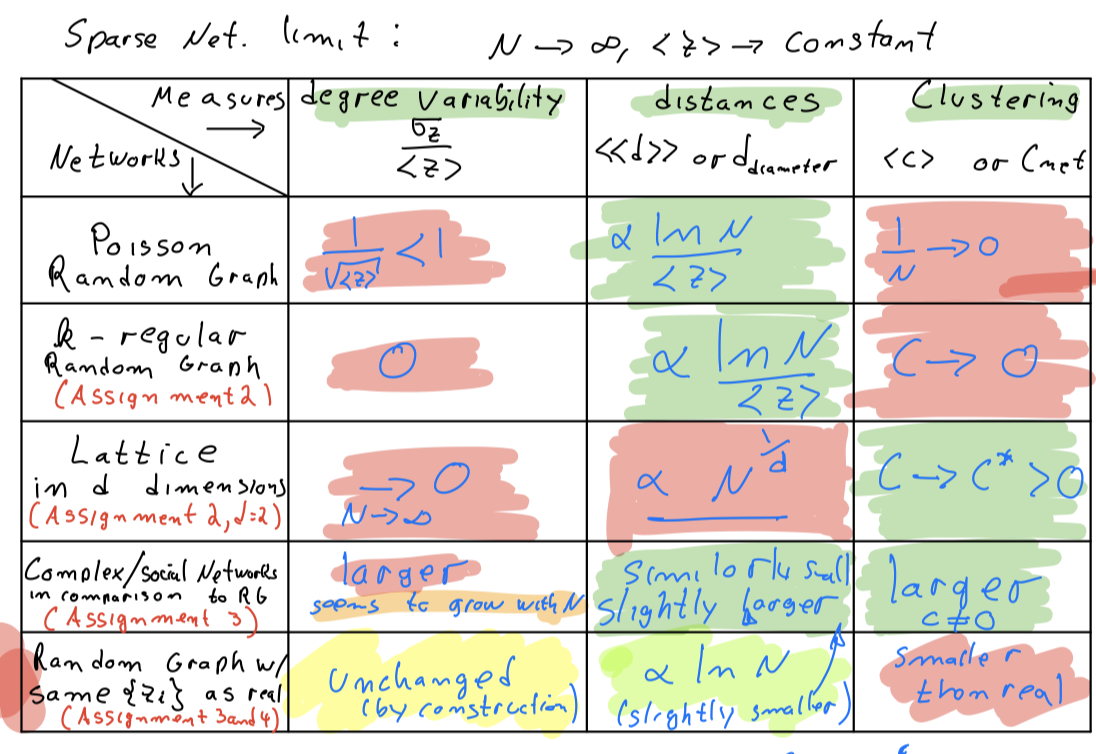 Sparse Net. limit : N → ∞, <z> → constant
Measures →
Networks ↓
degree variability
σz / <z>
distances
<<d>> or d diameter
Clustering
<c> or Cnet
Poisson
Random Graph
1/√<z> < 1
α ln N / <z>
1/N → 0
k - regular
Random Graph
(Assignment 2)
0
α ln N / <z>
C → 0
Lattice
in d dimensions
(Assignment 2, d=2)
→ 0
N → ∞
α N^1/d
C → C* > 0
Complex/Social Networks
in comparison to RG
(Assignment 3)
larger
seems to grow with N
similarly small
slightly larger
larger
C ≠ 0
Random Graph w/
same {zi} as real
(Assignment 3 and 4)
Unchanged
(by construction)
α ln N
(slightly smaller)
smaller
than real